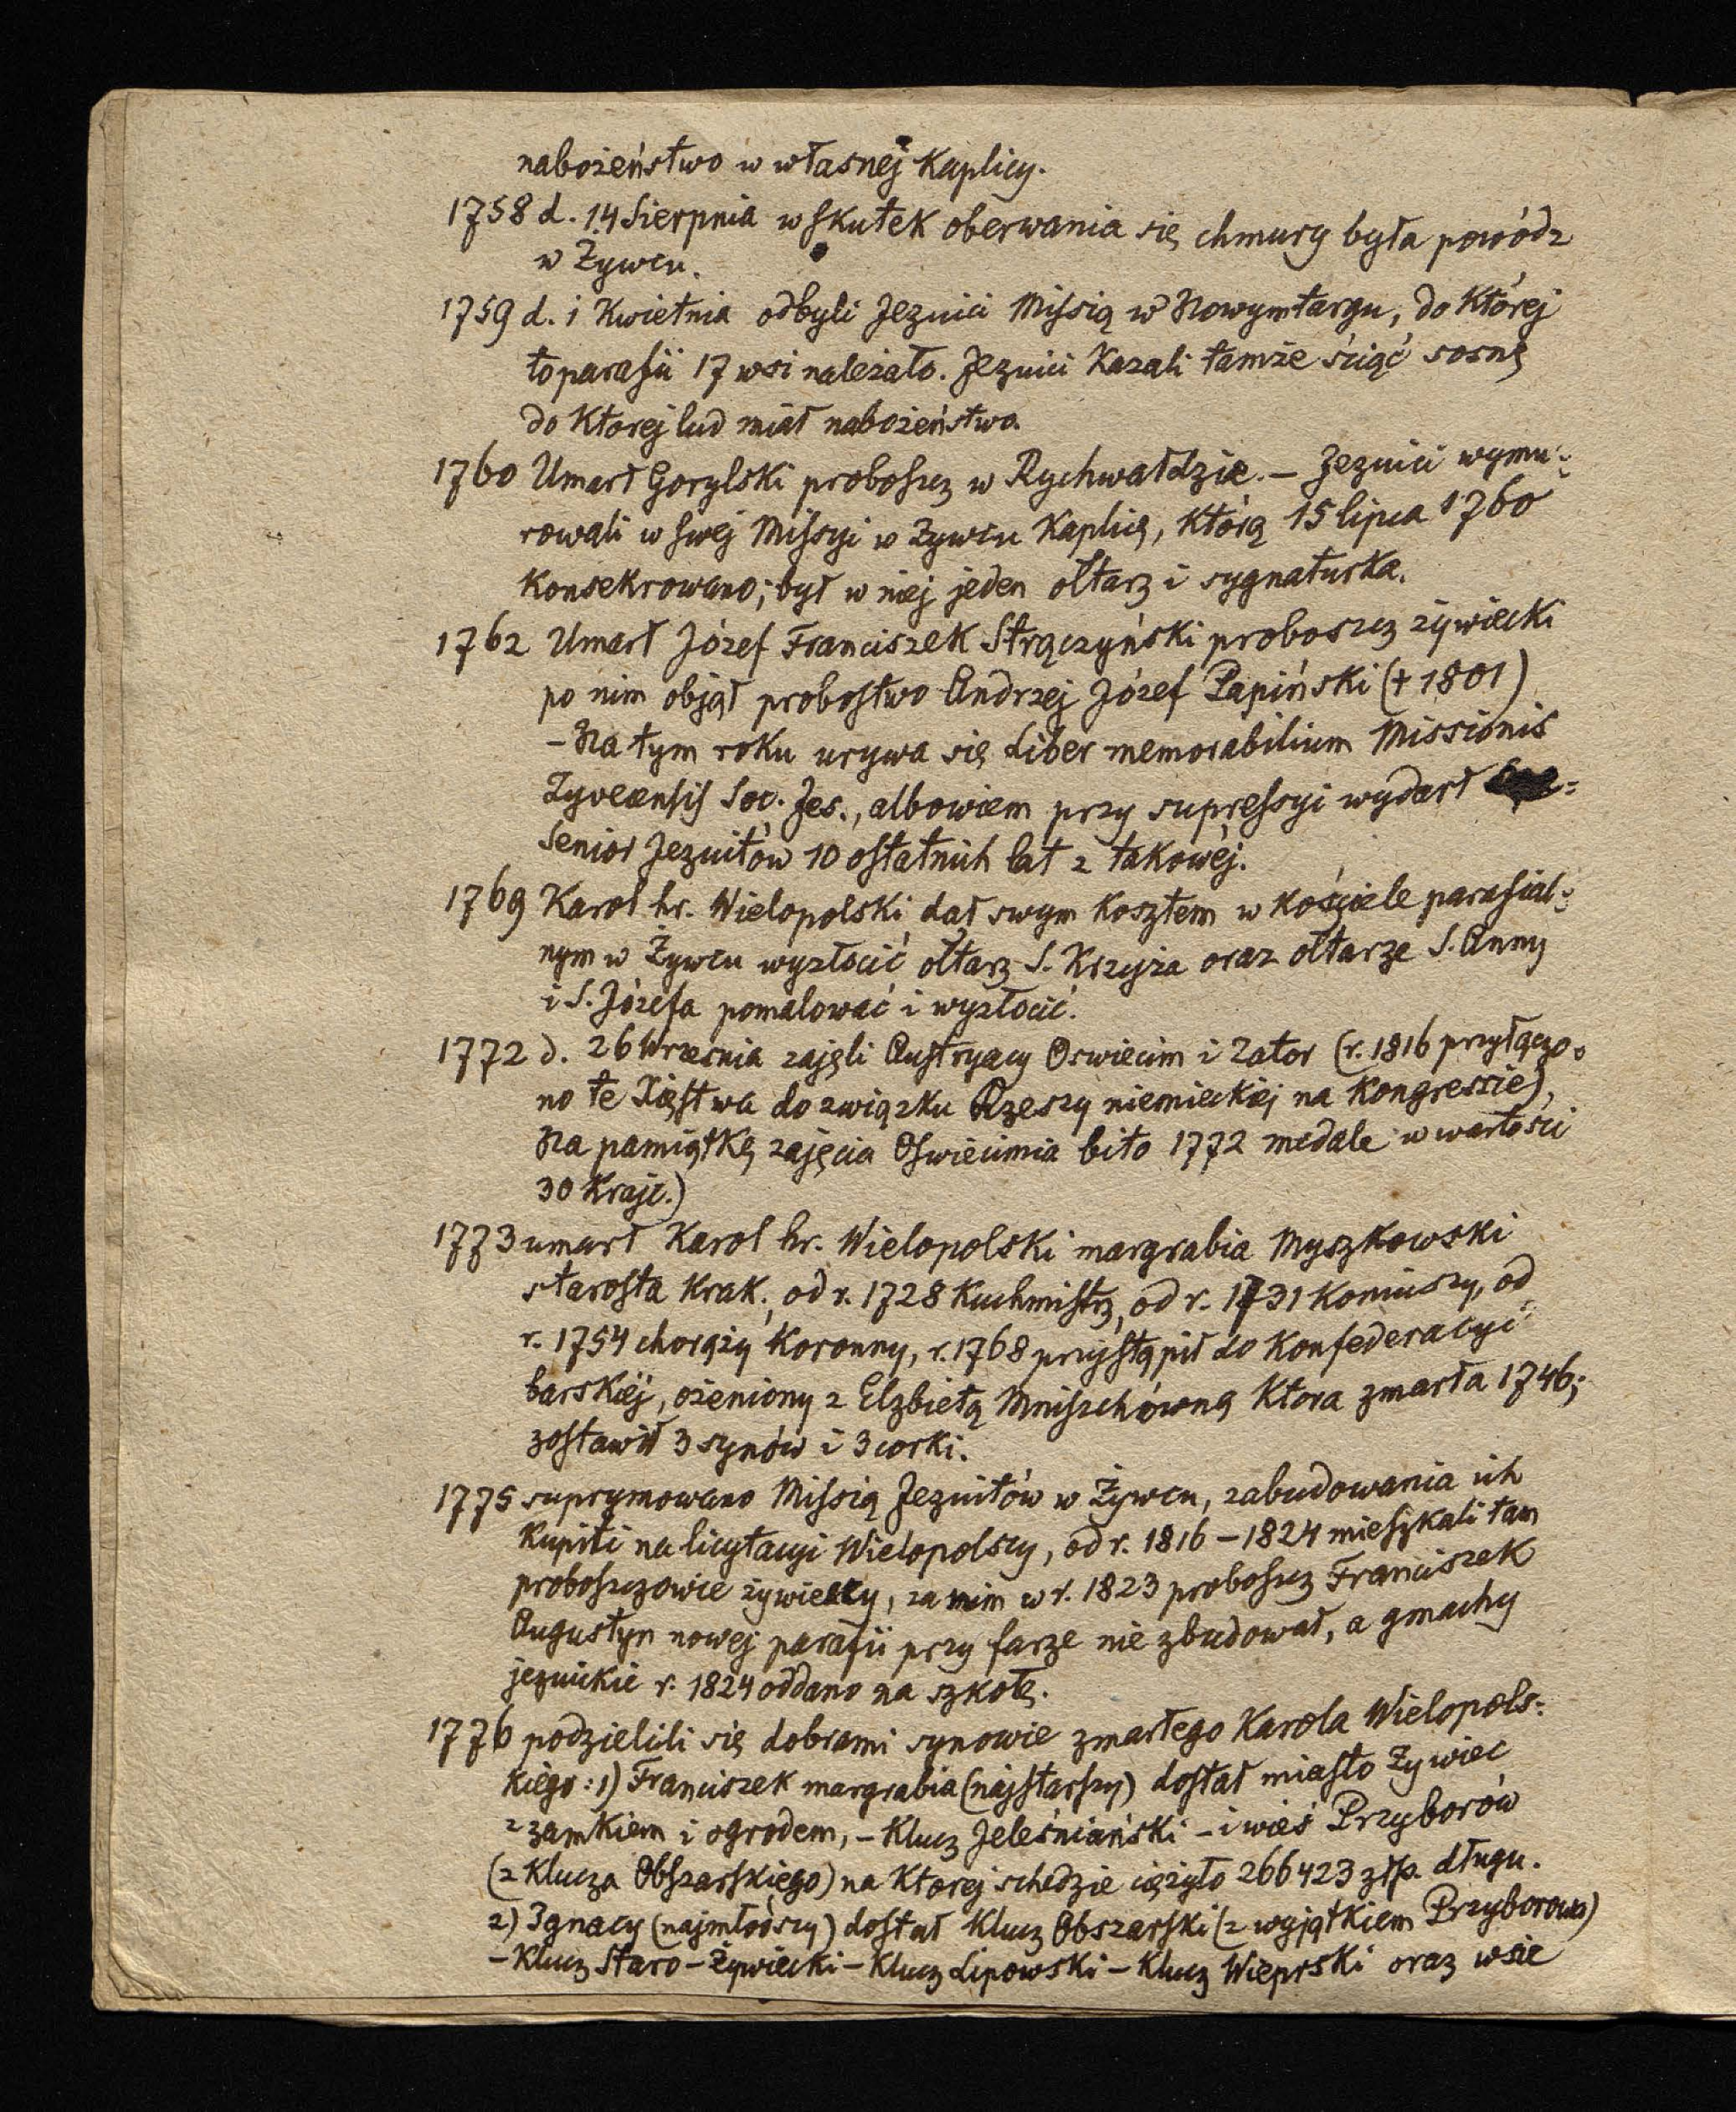 nabożeństwo w własnej Kaplicy.
1758 d. 14 Sierpnia wskutek oberwania się chmury była powódz
w Żywcu.
1759 d. 1 Kwietnia odbyli Jezuici Missią w Nowymtargu, do Której
to parafii 17 wsi należało. Jezuici Kazali tamże ściąć sosnę
do Ktorej lud miał nabożeństwo.
1760 Umarł Gorylski proboszcz w Rychwałdzie. – Jezuici wymu-
rowali w swej Missyi w Żywcu Kaplicę, Którą 15 lipca 1760
Konsekrowano; był w niej jeden ołtarz i sygnaturka.
1762 Umarł Józef Franciszek Strączyński proboszcz żywiecki
po nim objął probostwo Andrzej Józef Papiński (+ 1801)
– Na tym roku urywa się Liber memorabilium Missionis
Zyvecensis Soc. Jes., albowiem przy supressyi wydarł
Senior Jezuitów 10 ostatnich lat z takowéj.
1769 Karol hr. Wielopolski dał swym Kosztem w kościele parafial-
nym w Żywcu wyzłocić ołtarz S. Krzyża oraz ołtarze S. Anny
i S. Józefa pomalować i wyzłocić.
1772 d. 26 Wrzesnia zajęli Austryacy Oswiecim i Zator (r. 1816 przyłączo-
no te Xięstwa do związku Rzeszy niemieckiej na Kongressie),
Na pamiątkę zajęcia Oswiecimia bito 1772 medale w wartości
30 Krajc.)
1773 umarł Karol hr. Wielopolski margrabia Myszkowski
starosta Krak., od r. 1728 Kuchmistrz, od r. 1731 Koniuszy, od
r. 1754 chorąży Koronny, r. 1768 przystąpił do Konfederacyi
barskiéj, ożeniony z Elzbietą Mniszchówną Ktora zmarła 1746;
zostawił 3 synów i 3 corki.
1775 suprymowano Missią Jezuitów w Żywcu, zabudowania ich
Kupili na licytacyi Wielopolscy, od r. 1816 – 1824 mieszkali tam
proboszczowie żywieccy, za nim w r. 1823 proboszcz Franciszek
Augustyn nowej parafii przy farze nie zbudował, a gmachy
jezuickie r. 1824 oddano na szkołę.
1776 podzielili się dobrami synowie zmarłego Karola Wielopols-
kiego: 1) Franciszek margrabia (najstarszy) dostał miasto Żywiec
z zamkiem i ogrodem, – Klucz Jeleśniański – i wieś Przyborów
(z Klucza Obszarskiego) na Ktorej schedzie ciężyło 266423 złp. długu.
2) Ignacy (najmłodszy) dostał Klucz Obszarski (z wyjątkiem Przyborowa)
– Klucz Staro-Żywiecki – Klucz Lipowski – Klucz Wieprski oraz wsie